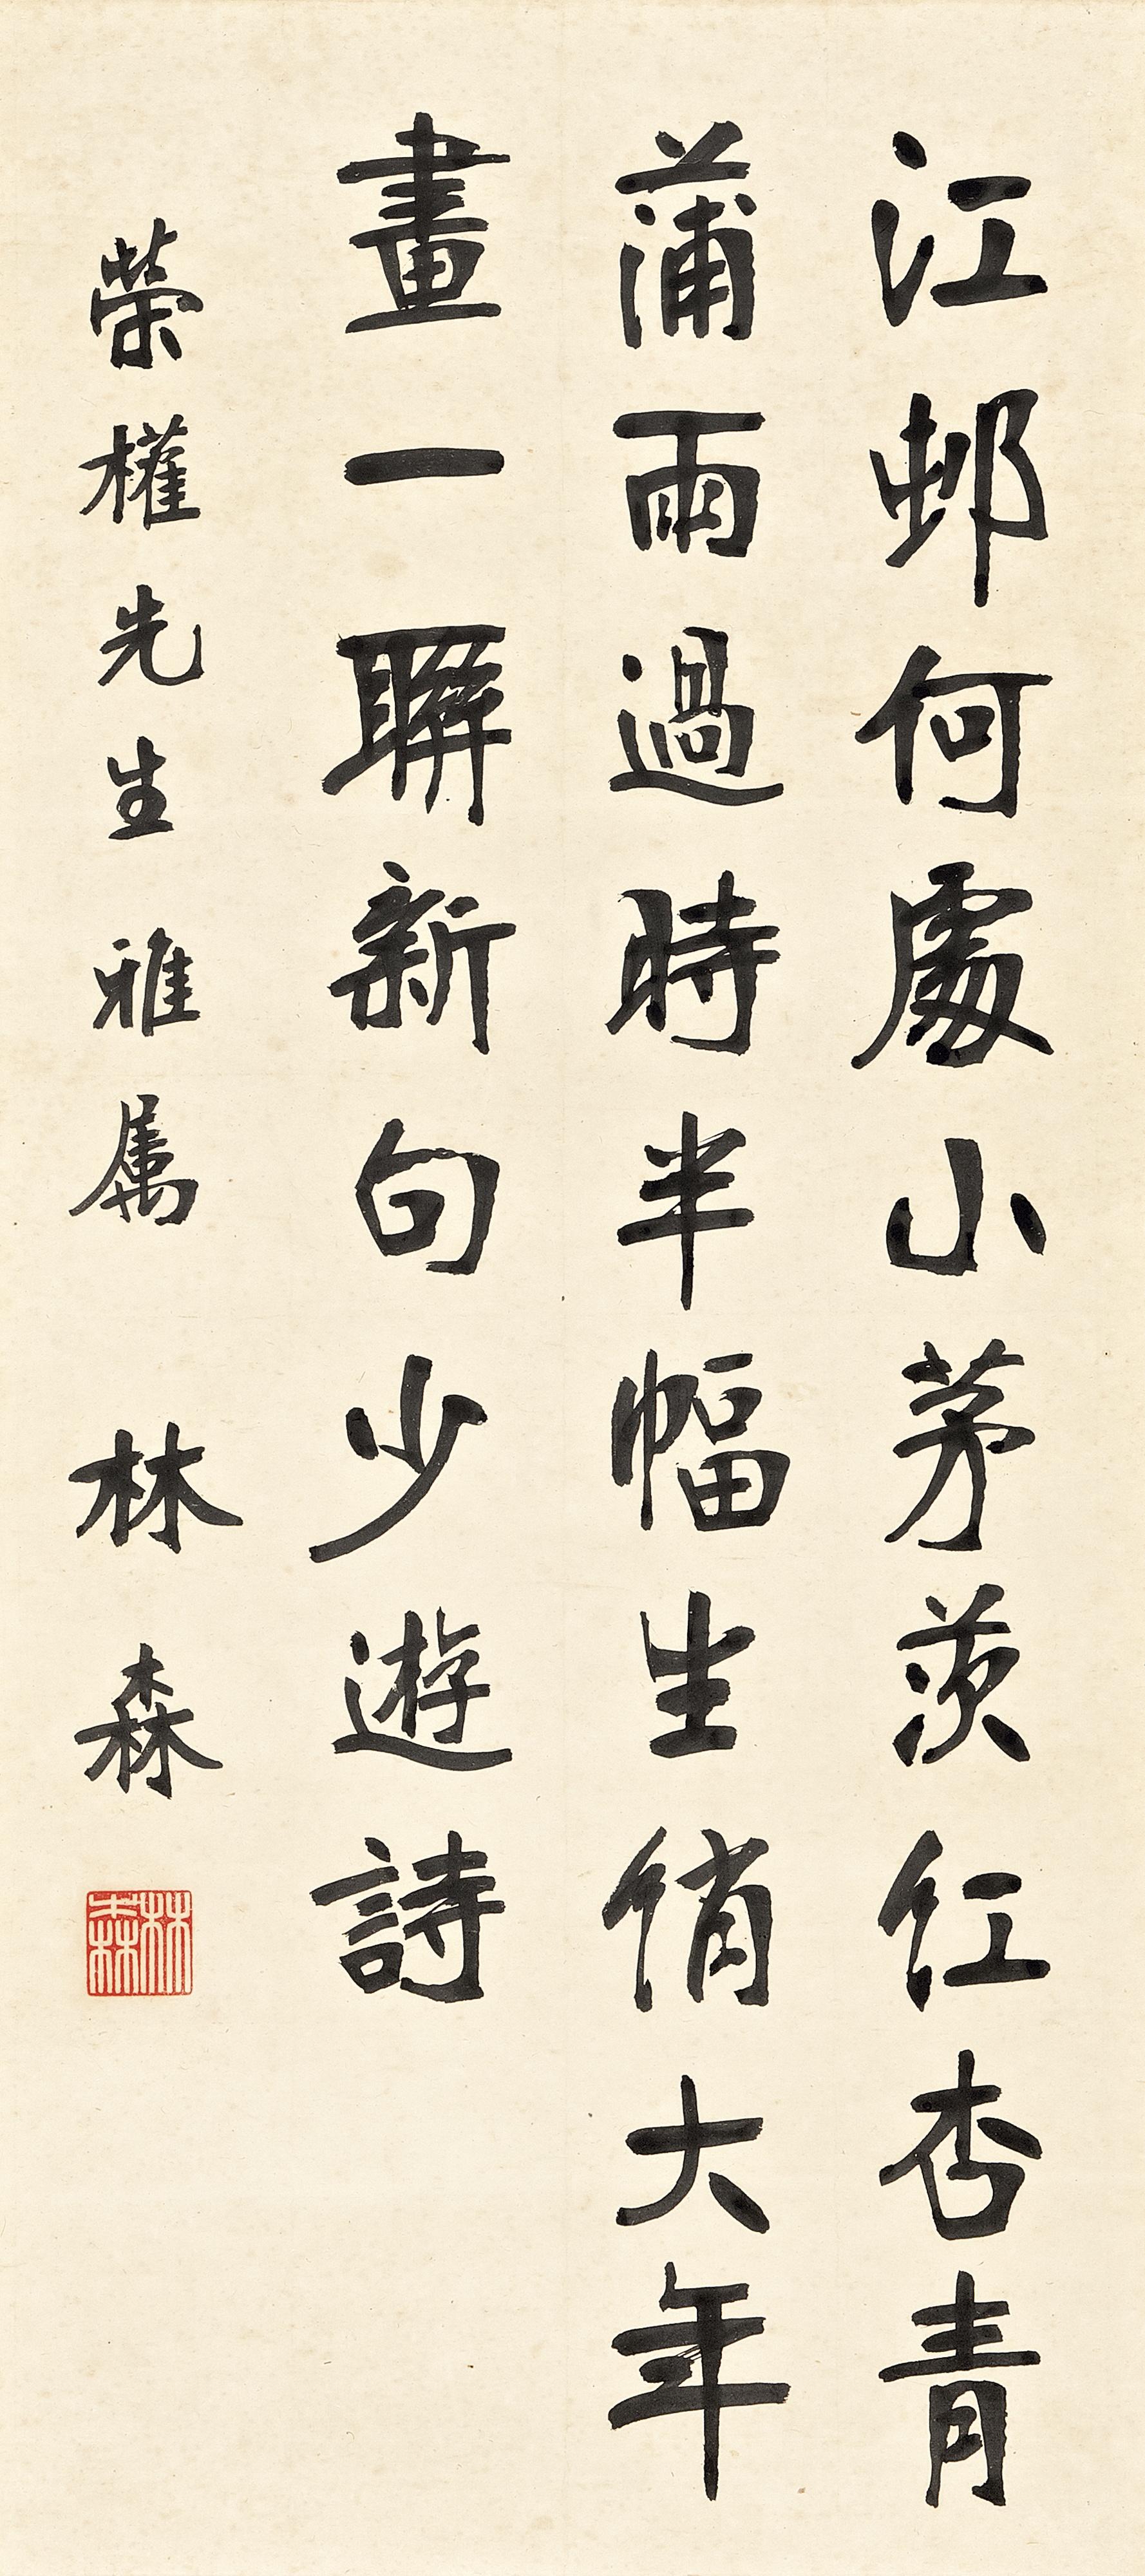 江邨何處小茅茨紅杏青
蒲雨過時半幅生綃大年
畫一聯新句少遊詩
榮權先生雅屬 林森
林森